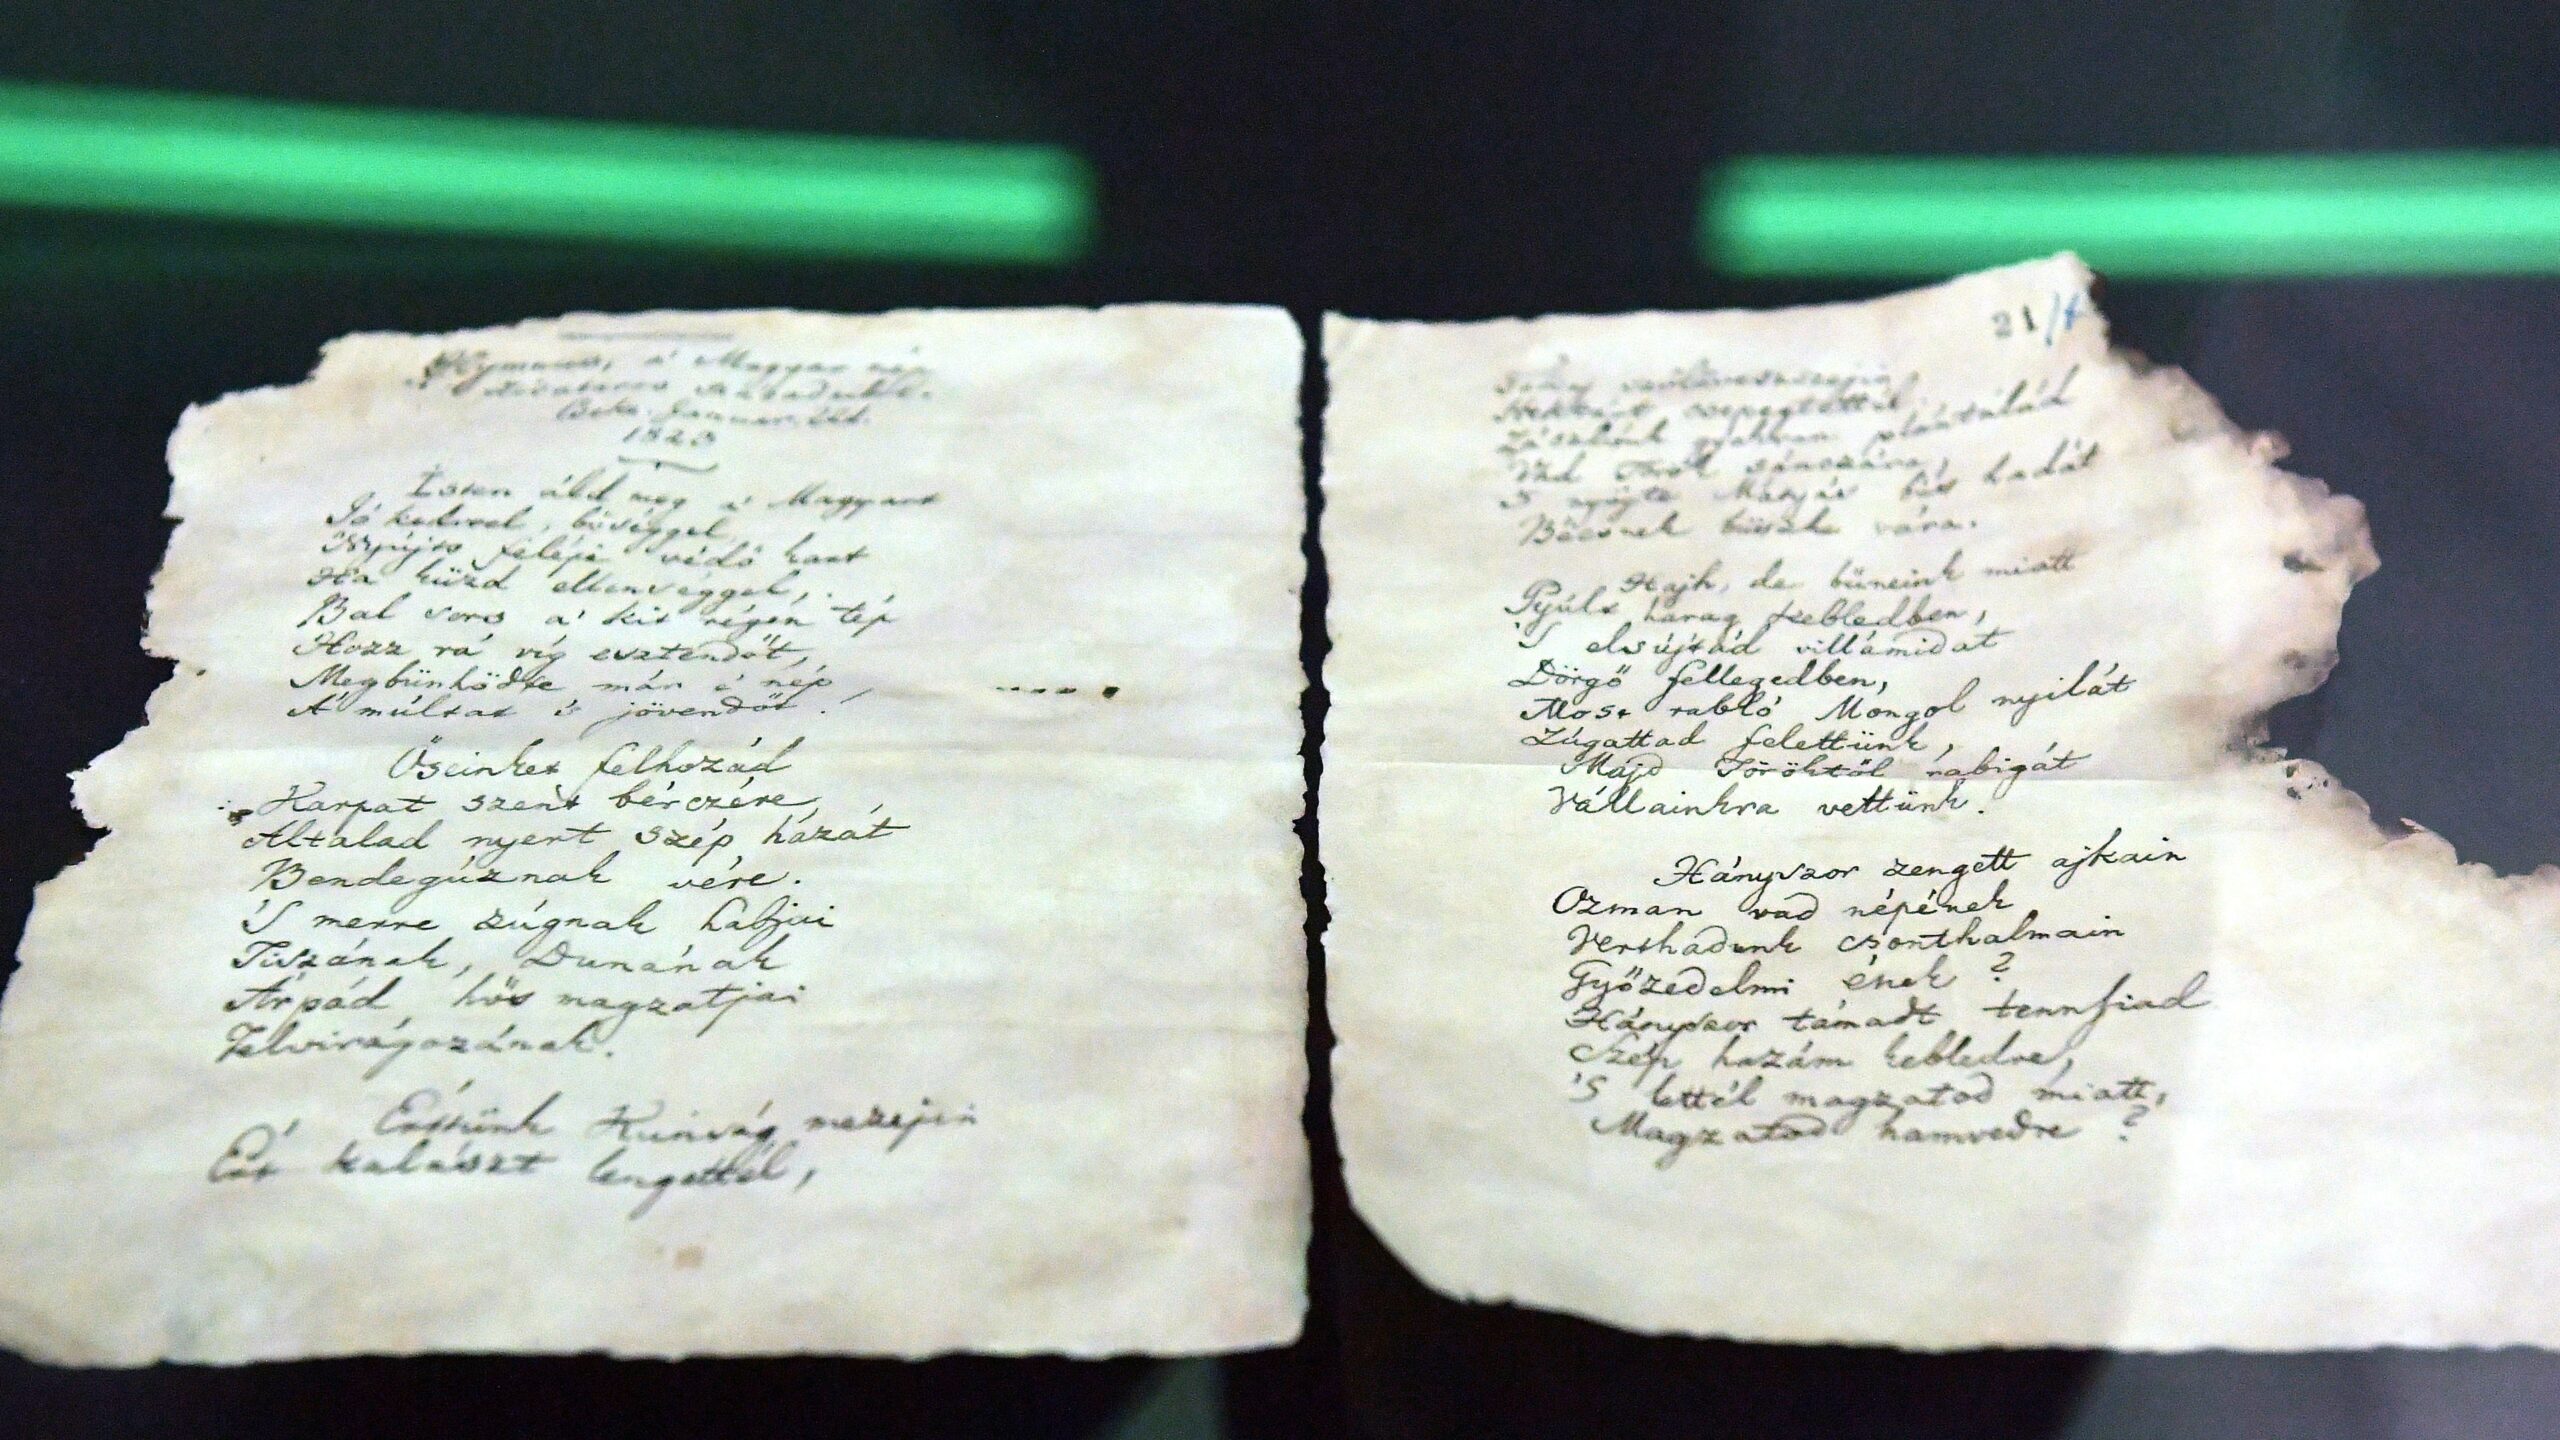 Hymnus, a' Magyar nép
zivataros századaiból.
Cseke. Januar. 22d.
1823
Isten áldd meg a' Magyart
Jó kedvvel, bőséggel,
Nyújts feléje védő kart
Ha küzd ellenséggel,
Bal sors a' kit régen tép
Hozz rá víg esztendőt,
Megbünhödte már e' nép,
A' múltat 's jövendőt!
Őseinket felhozád
Karpat szent bérczére,
Általad nyert szép hazát
Bendegúznak vére.
'S merre zúgnak habjai
Tiszának, Dunának
Árpád hős magzatjai
Felvirágozának.
Értünk Kunság mezején
Ért kalászt lengettél,
21/
Tokaj szőlővesszején
Nektárt csepegtettél.
Zászlónk gyakran plántálád
Vad Török sánczára,
'S nyögte Mátyás bús hadát
Bécsnek büszke vára.
Hajh, de bűneink miatt
Gyúlt harag kebledben,
'S elsújtád villámidat
Dörgő fellegedben,
Most rabló Mongol nyilát
Zúgattad felettünk,
Majd Töröktől rabigát
Vállainkra vettünk.
Hányszor zengett ajkain
Ozman vad népének
Vert hadunk csonthalmain
Győzedelmi ének?
Hányszor támadt tennfiad
Szép hazám kebledre,
'S lettél magzatod miatt,
Magzatod hamvedre?